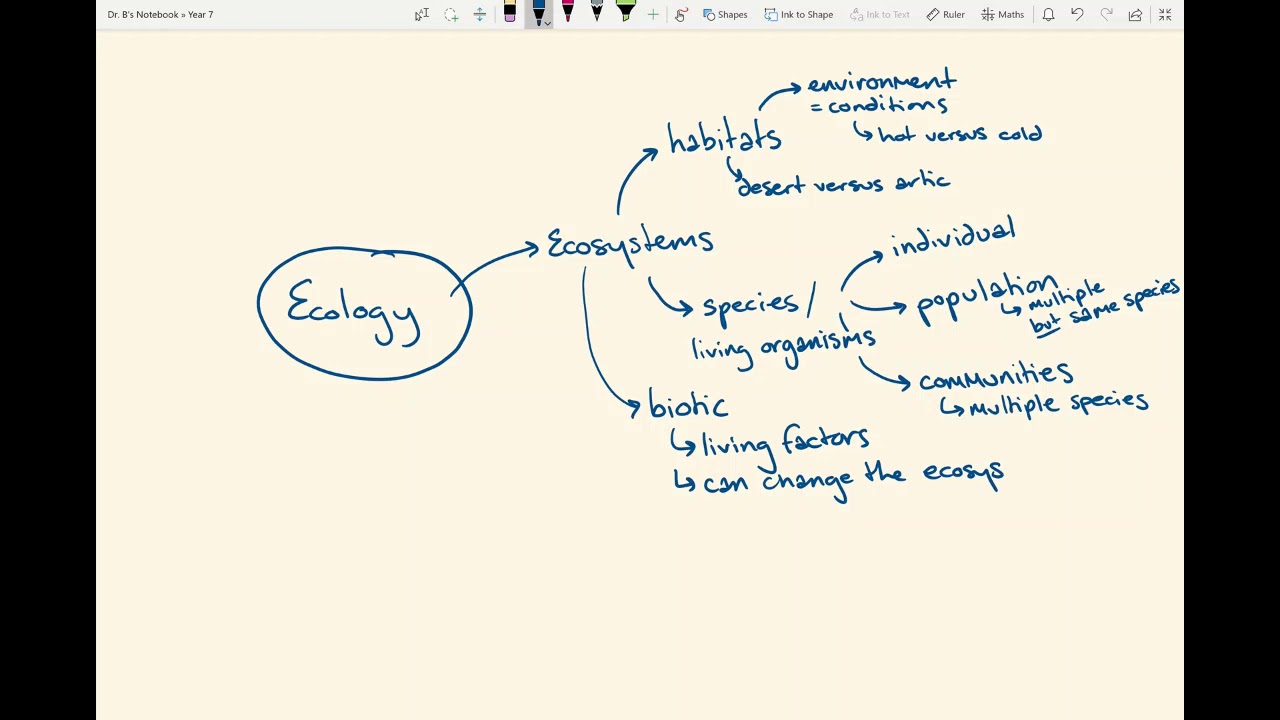 Dr. B's Notebook » Year 7
Shapes
Ink to Shape
Ink to Text
Ruler
Maths
environment
= conditions
hot versus cold
habitats
desert versus artic
Ecosystems
Ecology
species /
living organisms
individual
population
multiple
but same species
communities
multiple species
biotic
living factors
can change the ecosys